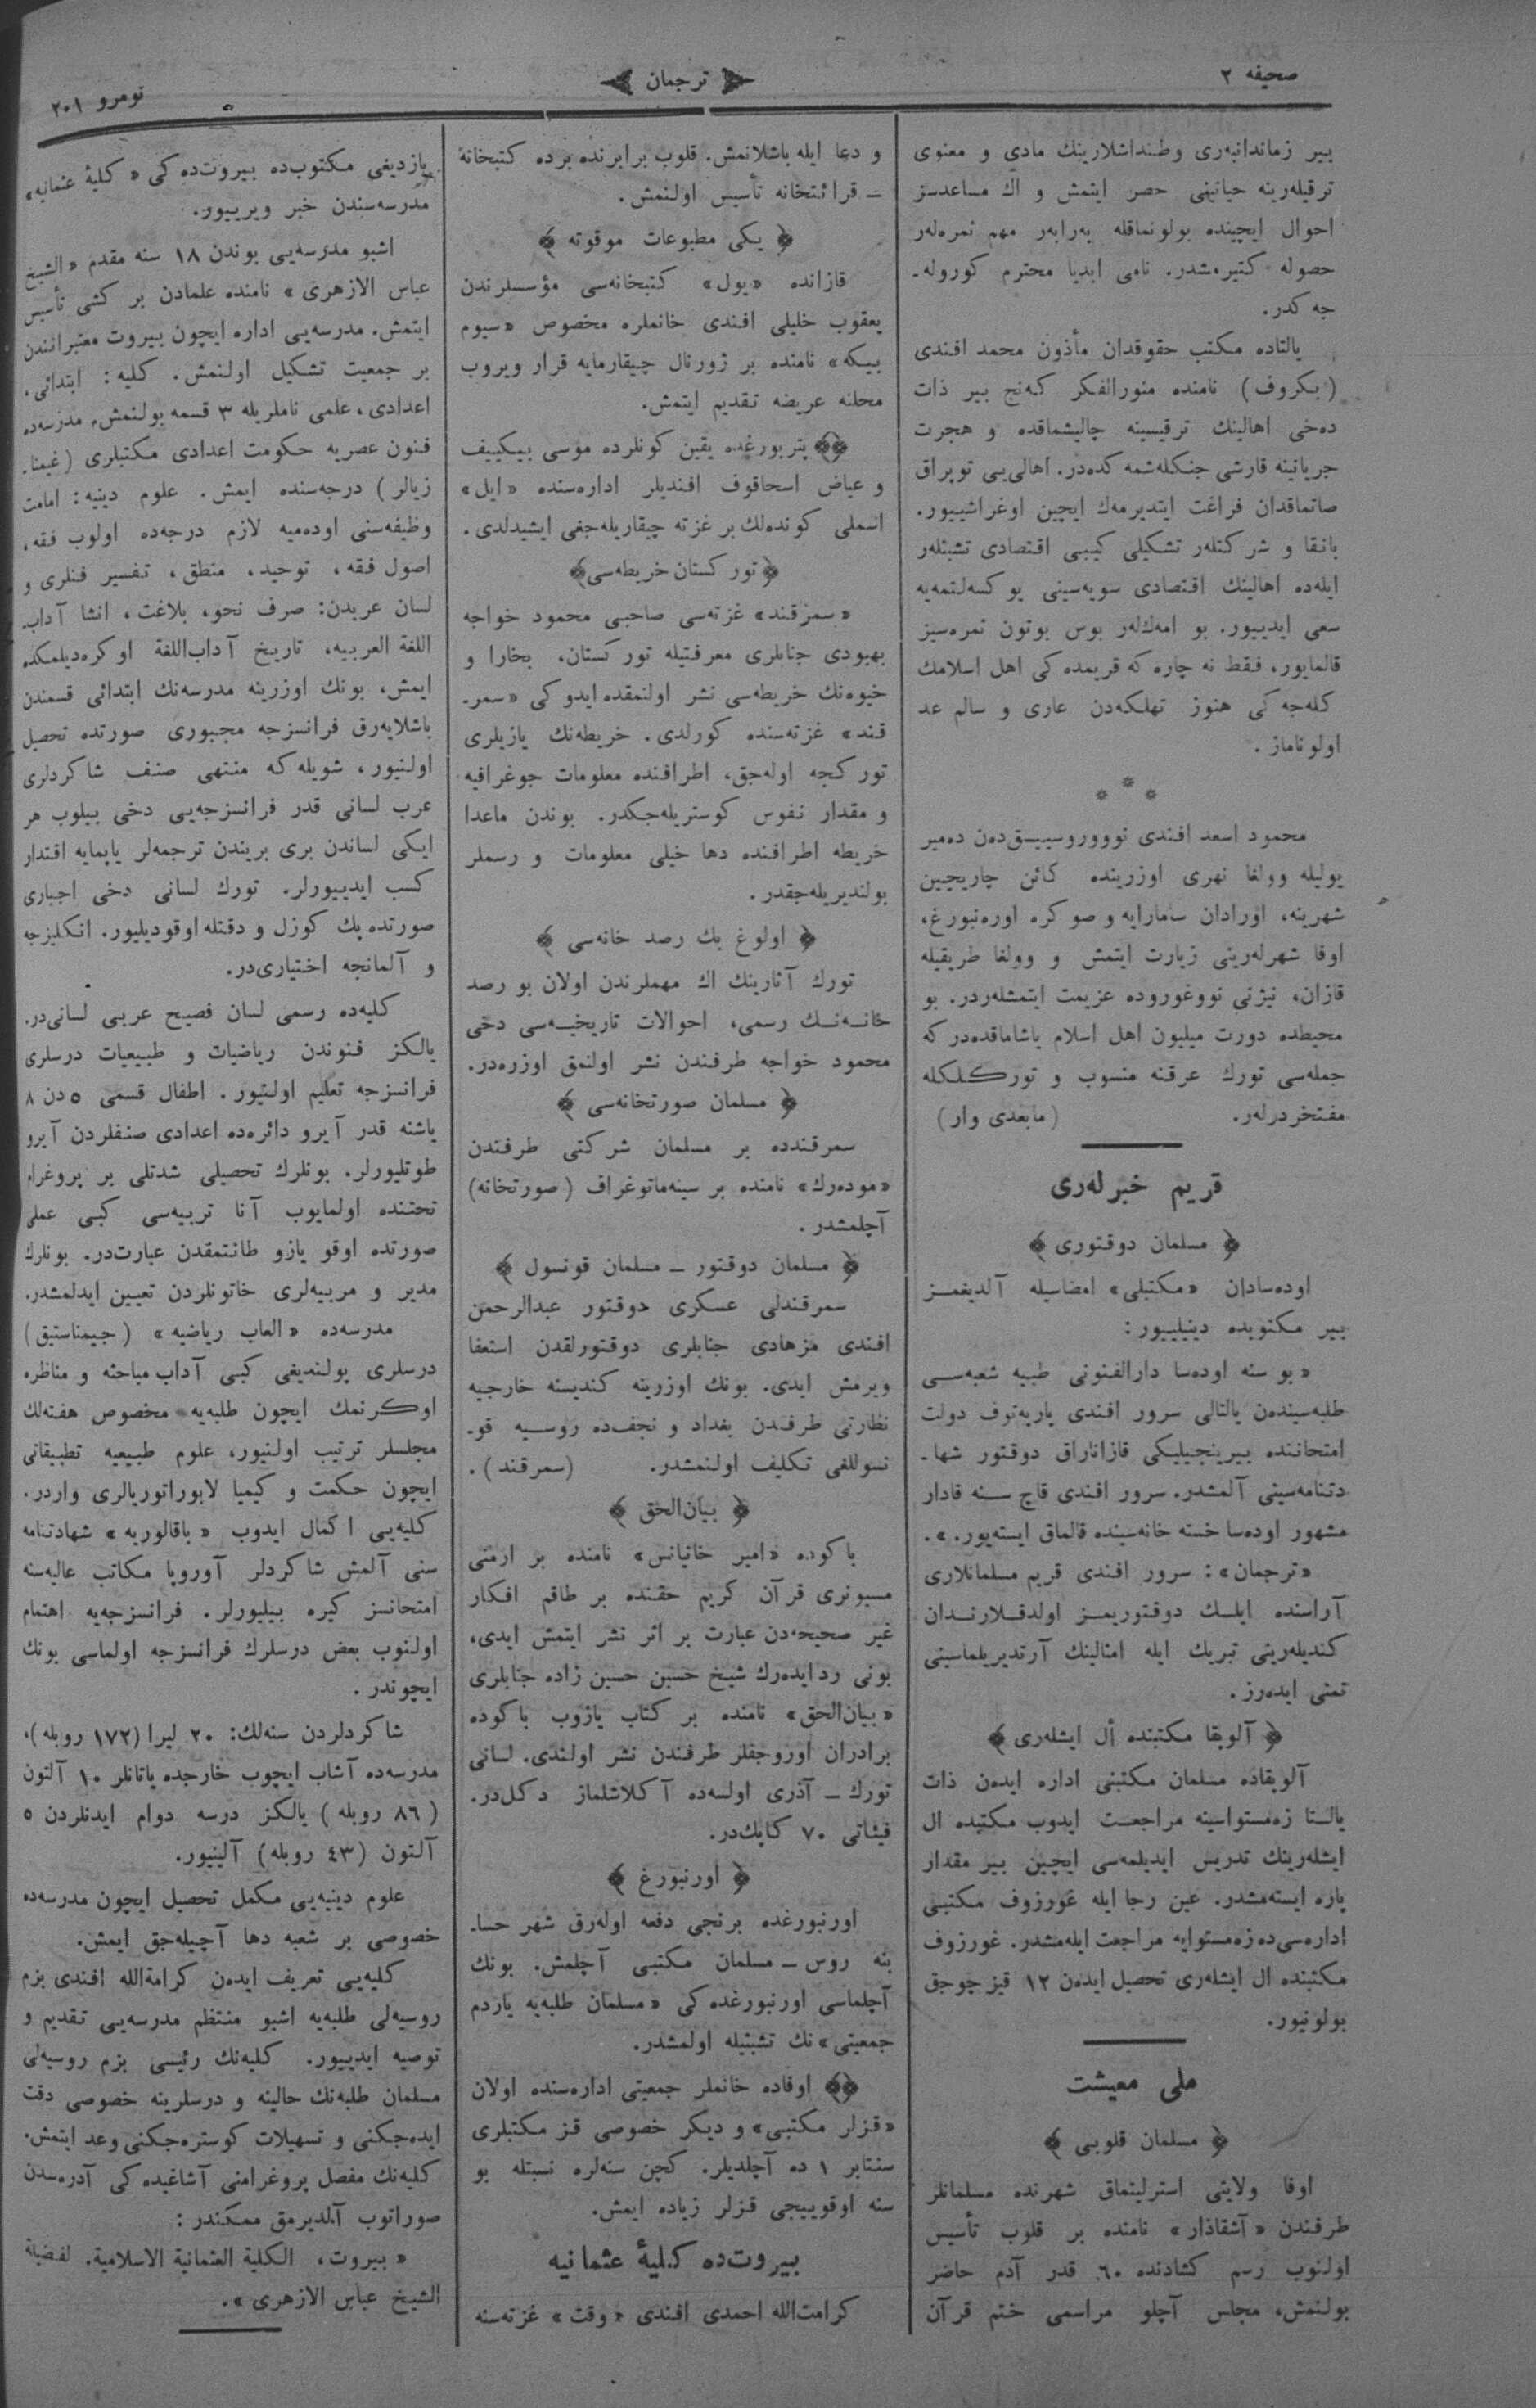 صحيفه ٢
ترجمان
نومرو ٢٠١
بير زماندانبه‌رى وطنداشلارينك مادى و معنوى
ترقيله‌رينه حياتينى حصر ايتمش و اك مساعدسز
احوال ايچينده بولونماقله به‌رابه‌ر مهم ثمره‌له‌ر
حصوله كتيره‌مشدر. نامى ابديا محترم كوروله‌ـ
جه كدر.
يالتاده مكتب حقوقدان مأذون محمد افندى
(بكروف) نامنده منورالفكر كه‌نج بير ذات
ده‌خى اهالينك ترقيسينه چاليشماقده و هجرت
جريانينه قارشى جنكله‌شمه كده‌در. اهالى‌يى توپراق
صاتماقدان فراغت ايتديرمه‌ك ايچين اوغراشييور.
بانقا و شركتله‌ر تشكيلى كيبى اقتصادى تشبثله‌ر
ايله‌ده اهالينك اقتصادى سويه‌سينى يوكسه‌لتمه‌يه
سعى ايدييور. بو امه‌ك‌له‌ر بوس بوتون ثمره‌سيز
قالمايور، فقط نه چاره كه قريمده كى اهل اسلامك
كله‌جه كى هنوز تهلكه‌دن عارى و سالم عد
اولوناماز.
* * *
محمود اسعد افندى نوووروسييـق‌ده‌ن ده‌مير
يوليله وولغا نهرى اوزرينده كائن چاريچين
شهرينه، اورادان سامارايه و صوكره اوره‌نبورغ،
اوفا شهرله‌رينى زيارت ايتمش و وولغا طريقيله
قازان، نيژنى نووغوروده عزيمت ايتمشله‌ردر. بو
محيطده دورت ميليون اهل اسلام ياشاماقده‌در كه
جمله‌سى تورك عرقنه منسوب و توركلكله
مفتخردرله‌ر. (مابعدى وار)
قريم خبرله‌رى
﴿ مسلمان دوقتورى ﴾
اوده‌سادان «مكتبلى» امضاسيله آلديغمـز
بير مكتوبده دينيلييور:
«بو سنه اوده‌سا دارالفنونى طبيه شعبه‌ســى
طلبه‌سينده‌ن يالتالى سرور افندى پاريه‌توف دولت
امتحاننده بيرينجيليكى قازاناراق دوقتور شهاـ
دتنامه‌سينى آلمشدر. سرور افندى قاچ سـنه قادار
مشهور اوده‌سا خسته خانه‌سينده قالماق ايسته‌يور.».
«ترجمان»: سرور افندى قريم مسلمانلارى
آراسنده ايلـك دوقتوريمـز اولدقـلارنـدان
كنديله‌رينى تبريك ايله امثالينك آرتديريلماسينى
تمنى ايده‌رز.
﴿ آلوپقا مكتبنده أل ايشله‌رى ﴾
آلوپقاده مسلمان مكتبنى اداره ايده‌ن ذات
يالـتا زه‌مستواسينه مراجعـت ايدوب مكتبده ال
ايشله‌رينك تدريس ايديلمه‌سى ايچين بير مقدار
پاره ايسته‌مشدر. عين رجا ايله غورزوف مكتبـى
اداره‌سى‌ده زه‌مستوايه مراجعت ايله‌مشدر. غورزوف
مكتبنده ال ايشله‌رى تحصيل ايده‌ن ١٢ قيز چوجق
بولونيور.
ملى معيشت
﴿ مسلمان قلوبى ﴾
اوفا ولايتى استرليتماق شهرنده مسلمانلر
طرفندن «آشقاذار» نامنده بر قلوب تأسيس
اولنوب رسم كشادنده ٦٠ قدر آدم حاضر
بولنمش، مجلس آچلو مراسمى ختم قرآن
و دعا ايله باشلانمش. قلوب برابرنده برده كتبخانهٔ
ـ قرائتخانه تأسيس اولنمش.
﴿ يكى مطبوعات موقوته ﴾
قازانده «يول» كتبخانه‌سى مؤسسلرندن
يعقوب خليلى افندى خانملره مخصوص «سيوم
بيكه» نامنده بر ژورنال چيقارمايه قرار ويروب
محلنه عريضه تقديم ايتمش.
﴿﴾ پتربورغده يقين كونلرده موسى بيكييف
و عياض اسحاقوف افنديلر اداره‌سنده «ايل»
اسملى كونده‌لك بر غزته چيقاريله‌جغى ايشيدلدى.
﴿توركستان خريطه‌سى﴾
«سمرقند» غزته‌سى صاحبى محمود خواجه
بهبودى جنابلرى معرفتيله توركستان، بخارا و
خيوه‌نك خريطه‌سى نشر اولنمقده ايدوكى «سمرـ
قند» غزته‌سنده كورلدى. خريطه‌نك يازيلرى
توركجه اوله‌جق، اطرافنده معلومات جوغرافيه
و مقدار نفوس كوستريله‌جكدر. بوندن ماعدا
خريطه اطرافنده دها خيلى معلومات و رسملر
بولنديريله‌جقدر.
﴿ اولوغ بك رصد خانه‌سى ﴾
تورك آثارينك اك مهملرندن اولان بو رصد
خانـه‌نـك رسمى، احوالات تاريخيـه‌سى دخى
محمود خواجه طرفندن نشر اولنمق اوزره‌در.
﴿ مسلمان صورتخانه‌سى ﴾
سمرقندده بر مسلمان شركتى طرفندن
«موده‌رك» نامنده بر سينه‌ماتوغراف (صورتخانه)
آچلمشدر.
﴿ مسلمان دوقتور ـ مسلمان قونسول ﴾
سمرقندلى عسكرى دوقتور عبدالرحمن
افندى فرهادى جنابلرى دوقتورلقدن استعفا
ويرمش ايدى. بونك اوزرينه كنديسنه خارجيه
نظارتى طرفندن بغداد و نجف‌ده روسـيه قوـ
نسوللغى تكليف اولنمشدر. (سمرقند).
﴿ بيان‌الحق ﴾
باكوده «امير خانيانس» نامنده بر ارمنى
مسيونرى قرآن كريم حقنده بر طاقم افكار
غير صحيحه‌دن عبارت بر اثر نشر ايتمش ايدى،
بونى رد ايده‌رك شيخ حسين حسين زاده جنابلرى
«بيان‌الحق» نامنده بر كتاب يازوب باكوده
برادران اوروجفلر طرفندن نشر اولندى. لسانى
تورك ـ آذرى اولسه‌ده آكلاشلماز دكل‌در.
فيئاتى ٧٠ كاپك‌در.
﴿ اورنبورغ ﴾
اورنبورغده برنجى دفعه اوله‌رق شهر حساـ
بنه روس ـ مسلمان مكتبى آچلمش. بونك
آچلماسى اورنبورغده كى «مسلمان طلبه‌يه ياردم
جمعيتى» نك تشبثيله اولمشدر.
﴿﴾ اوفاده خانملر جمعيتى اداره‌سنده اولان
«قزلر مكتبى» و ديكر خصوصى قز مكتبلرى
سنتابر ١ ده آچلديلر. كچن سنه‌لره نسبتله بو
سنه اوقوييجى قزلر زياده ايمش.
بيروت‌ده كـليهٔ عثمانيه
كرامت‌الله احمدى افندى «وقت» غزته‌سنه
يازديغى مكتوب‌ده بيروت‌ده كى «كليهٔ عثمانيه»
مدرسه‌سندن خبر ويرييور.
اشبو مدرسه‌يى بوندن ١٨ سنه مقدم «الشيخ
عباس الازهرى» نامنده علمادن بر كشى تأسيس
ايتمش. مدرسه‌يى اداره ايچون بيروت معتبرانندن
بر جمعيت تشكيل اولنمش. كليه: ابتدائى،
اعدادى، علمى ناملريله ٣ قسمه بولنمش، مدرسه‌ده
فنون عصريه حكومت اعدادى مكتبلرى (غيمناـ
زيالر) درجه‌سنده ايمش. علوم دينيه: امامت
وظيفه‌سنى اوده‌ميه لازم درجه‌ده اولوب فقه،
اصول فقه، توحيد، منطق، تفسير فنلرى و
لسان عربدن: صرف نحو، بلاغت، انشا آداب
اللغة العربيه، تاريخ آداب‌اللغة اوكره‌ديلمكده
ايمش، بونك اوزرينه مدرسه‌نك ابتدائى قسمندن
باشلايه‌رق فرانسزجه مجبورى صورتده تحصيل
اولنيور، شويله كه منتهى صنف شاكردلرى
عرب لسانى قدر فرانسزجه‌يى دخى بيلوب هر
ايكى لساندن برى بريندن ترجمه‌لر ياپمايه اقتدار
كسب ايدييورلر. تورك لسانى دخى اجبارى
صورتده پك كوزل و دقتله اوقوديليور. انكليزجه
و آلمانجه اختيارى‌در.
كليه‌ده رسمى لسان فصيح عربى لسانى‌در.
يالكز فنوندن رياضيات و طبيعيات درسلرى
فرانسزجه تعليم اولنيور. اطفال قسمى ٥ دن ٨
ياشنه قدر آيرو دائره‌ده اعدادى صنفلردن آيرو
طوتليورلر. بونلرك تحصيلى شدتلى بر پروغرام
تحتنده اولمايوب آنا تربيه‌سى كبى عملى
صورتده اوقو يازو طانتمقدن عبارت‌در. بونلرك
مدير و مربيه‌لرى خاتونلردن تعيين ايدلمشدر.
مدرسه‌ده «العاب رياضيه» (جيمناستيق)
درسلرى بولنديغى كبى آداب مباحثه و مناظره
اوكرنمك ايچون طلبه‌يه مخصوص هفته‌لك
مجلسلر ترتيب اولنيور، علوم طبيعيه تطبيقاتى
ايچون حكمت و كيميا لابوراتوريالرى واردر.
كليه‌يى اكمال ايدوب «باقالوريه» شهادتنامه
سنى آلمش شاكردلر آوروپا مكاتب عاليه‌سنه
امتحانسز كيره بيليورلر. فرانسزجه‌يه اهتمام
اولنوب بعض درسلرك فرانسزجه اولماسى بونك
ايچوندر.
شاكردلردن سنه‌لك: ٢٠ ليرا (١٧٢ روبله)،
مدرسه‌ده آشاب ايچوب خارجده ياتانلر ١٠ آلتون
(٨٦ روبله) يالكز درسه دوام ايدنلردن ٥
آلتون (٤٣ روبله) آلينيور.
علوم دينيه‌يى مكمل تحصيل ايچون مدرسه‌ده
خصوصى بر شعبه دها آچيله‌جق ايمش.
كليه‌يى تعريف ايده‌ن كرامة‌الله افندى بزم
روسيه‌لى طلبه‌يه اشبو منتظم مدرسه‌يى تقديم و
توصيه ايدييور. كليه‌نك رئيسى بزم روسيه‌لى
مسلمان طلبه‌نك حالينه و درسلرينه خصوصى دقت
ايده‌جكنى و تسهيلات كوستره‌جكنى وعد ايتمش.
كليه‌نك مفصل پروغرامنى آشاغيده كى آدره‌سدن
صوراتوب آلديرمق ممكندر:
«بيروت، الكلية العثمانية الاسلامية. لفضيلة
الشيخ عباس الازهرى».